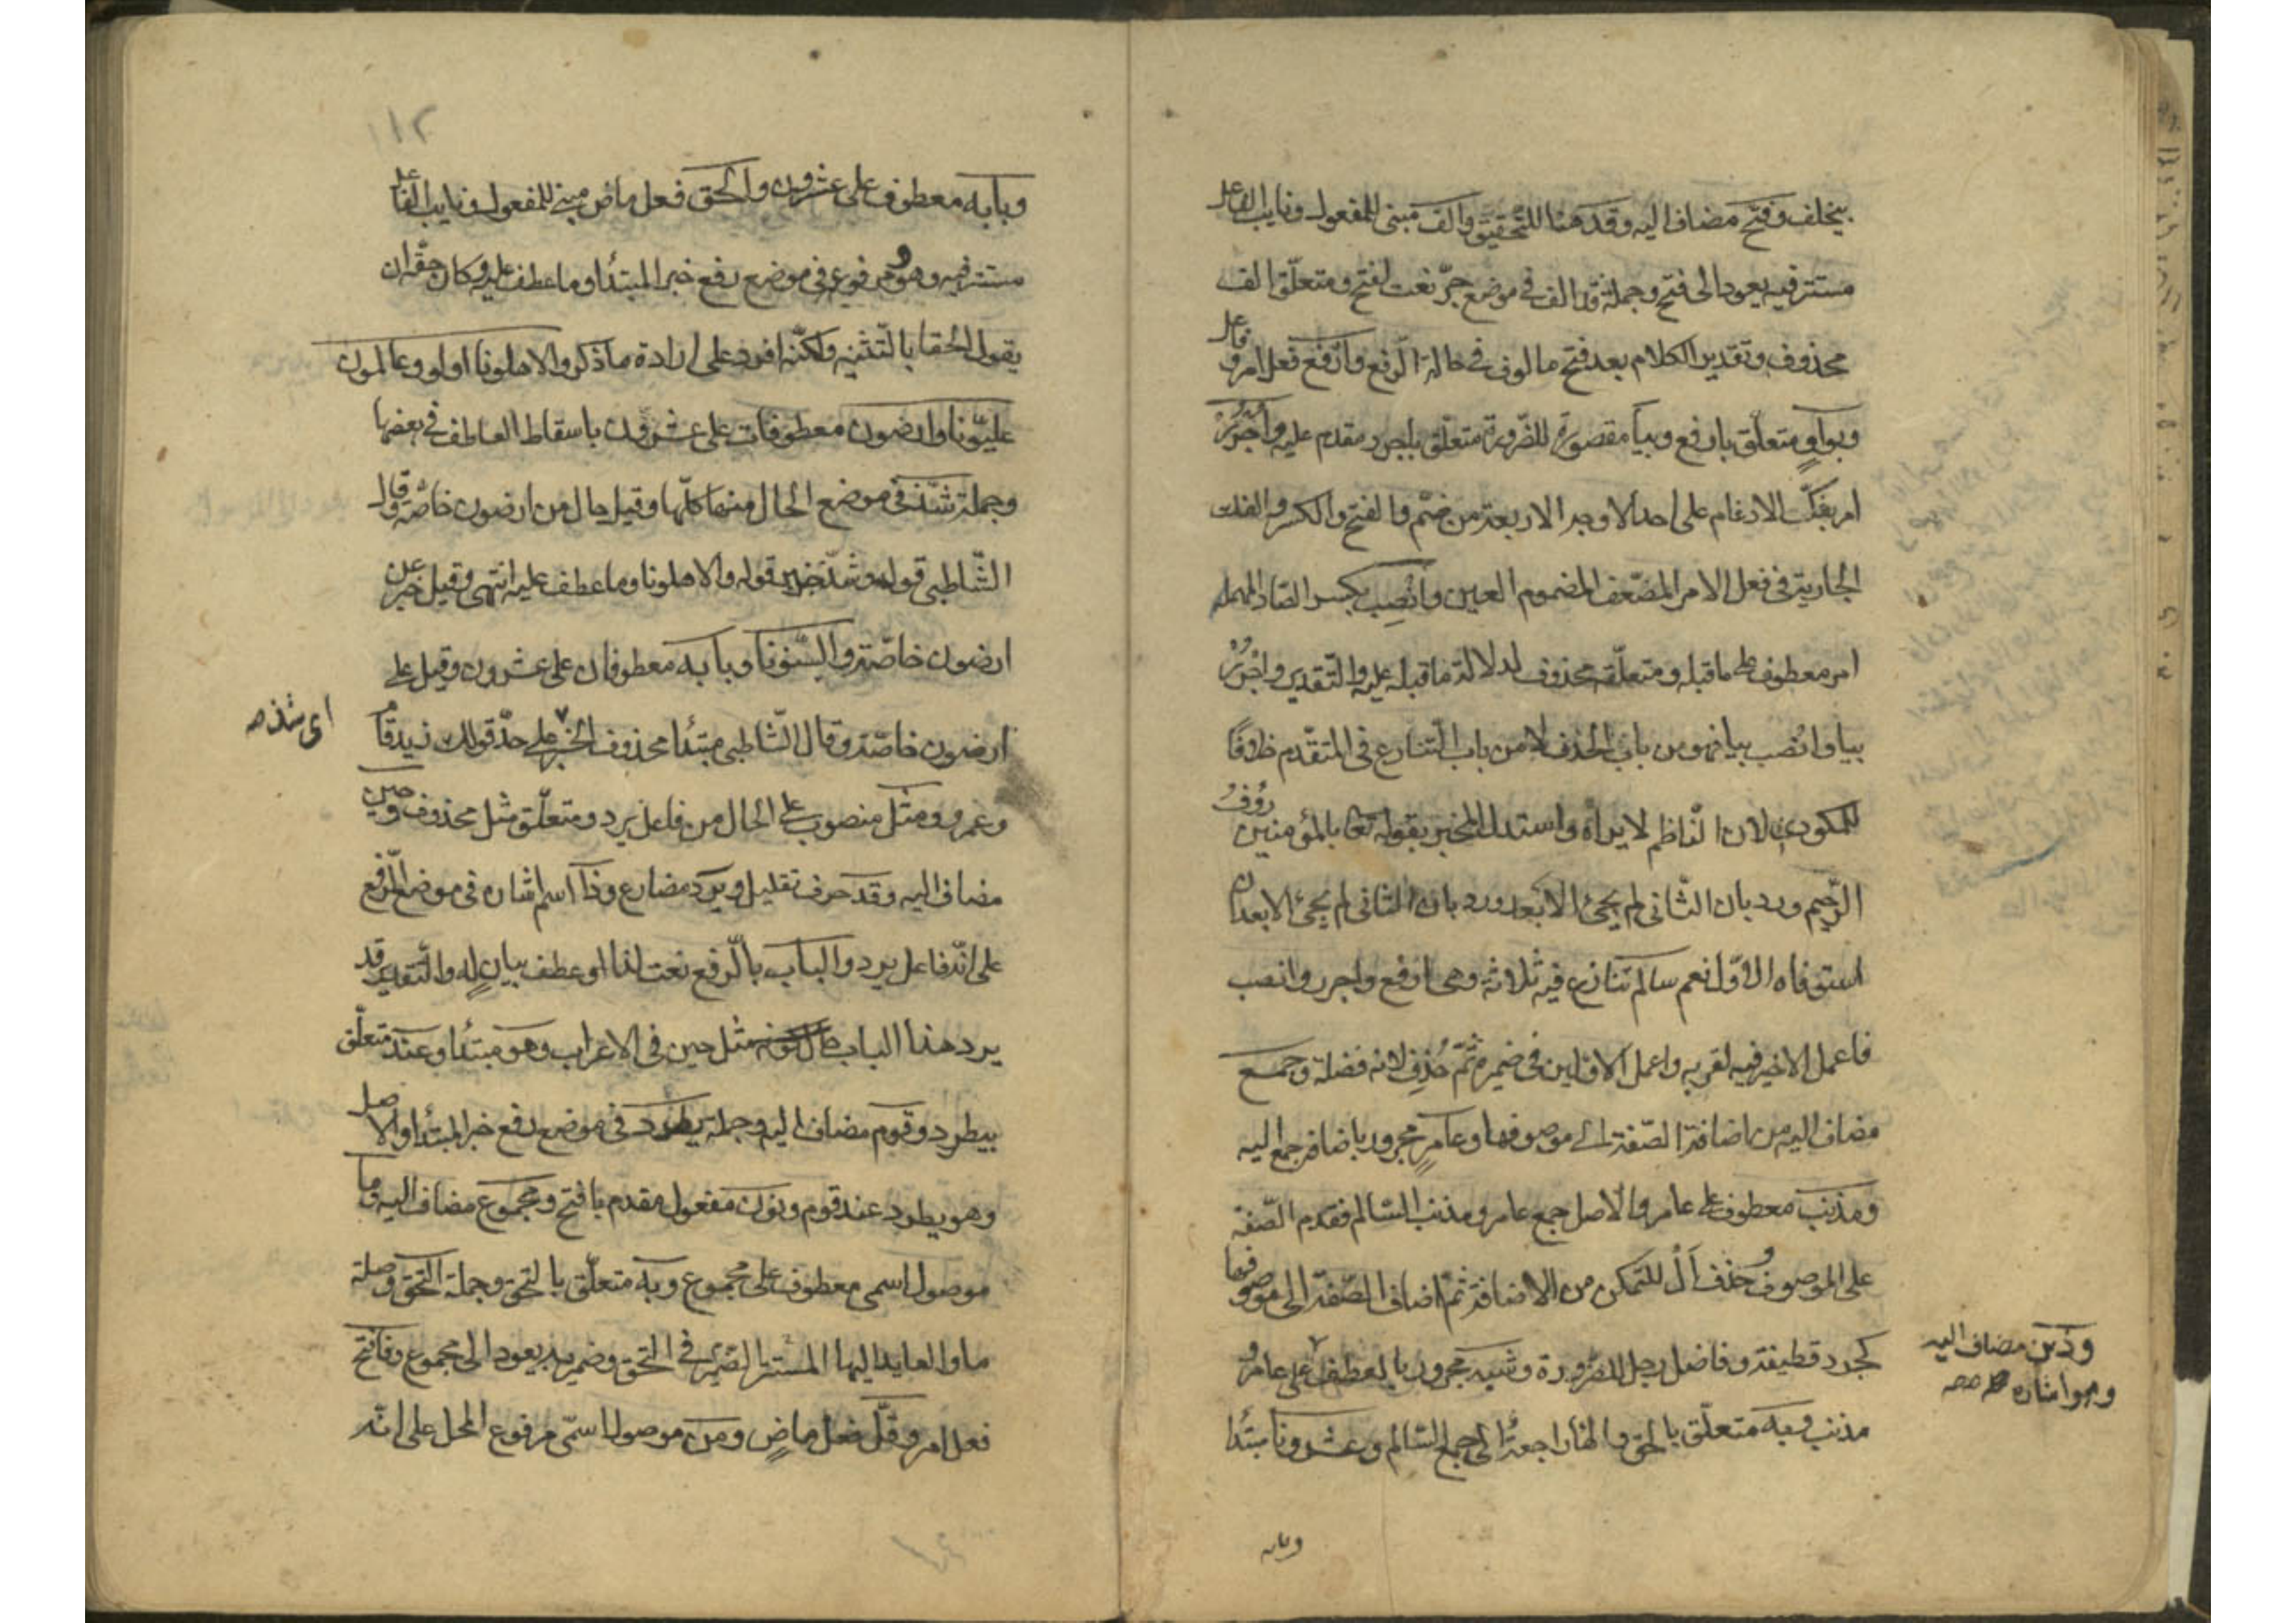 يخلف وفتح مضاف اليه وقد هنا للتحقيق والف مبنى للمفعول ونايب الفاعل
مستتر فيه يعود الى فتح وجملة قد الف فى موضع جر نعت لفتح ومتعلق الف
محذوف وتقدير الكلام بعد فتح مالوف فى حالة الرفع وارفع فعل امر وفاعل
وبواو متعلق بارفع وبيا مقصورة للضرورة متعلق باجرر مقدم عليه واجرر
امر بفك الادغام على احد الاوجه الاربعة من ضم والفتح والكسر والفك
الجارية فى فعل الامر المضعف المضموم العين وانصب بكسر الصاد المهملة
امر معطوف على ما قبله ومتعلقه محذوف لدلالة ما قبله عليه والتقدير واجرر
بيا وانصب بيا فهو من باب الحذف لا من باب التنازع فى المتقدم خلافًا
للمكودى لان الناظم لا يراه واستدل المخبر بقوله تعالى بالمؤمنين رؤف
الرحيم ورد بان الثانى لم يجئ الا بعد ورد بان الثانى لم يجئ الا بعد ان
استوفاه الاول نعم سالم تنازع فيه ثلاثة وهى ارفع واجرر وانصب
فاعمل الاخير فيه لقربه واعمل الاولين فى ضميره ثم حُذِف لانه فضلة وجمع
مضاف اليه من اضافة الصفة الى موصوفها وعامرٍ مجرور باضافة جمع اليه
ومذنب معطوف على عامر والاصل جمع عامر ومذنب السالم فقدم الصفة
على الموصوف وحذف ال للتمكن من الاضافة ثم اضاف الصفة الى موصوفها
كجرد قطيفة وفاضل رجل للضرورة وشبه مجرور بالعطف على عامر و
وذين مضاف اليه
وهو اشاره صح
مذنب وبه متعلق بالحق والهاء راجعة الى جمع السالم وعشرونا مبتدا
وبابه
١١٢
وبابه معطوف على عشرون والحق فعل ماض مبنى للمفعول ونايب الفاعل
مستتر فيه وهو مرفوعه فى موضع رفع خبر المبتدأ وما عطف عليه وكان حقه ان
يقول الحقا بالتثنيه ولكنه افرد على ارادة ما ذكر والاهلونا اولو وعالمون
عليونا وارضون معطوفات على عشرون باسقاط العاطف فى بعضها
وجملة شذ فى موضع الحال منها كلها وقيل حال من ارضون خاصّة وقال
الشاطبى قوله وشذ خبر قوله والاهلونا وما عطف عليه انتهى وقيل خبر عن
ارضون خاصّة والسنونا وبابه معطوفان على عشرون وقيل على
ارضون خاصّة وقال الشاطبى مبتدا محذوف الخبر على حدّ قولك زيد قام
اى شذ صح
وعمرو ومثل منصوب على الحال من فاعل يرد ومتعلق مثل محذوف وحين
مضاف اليه وقد حرف تقليل ويرد مضارع وذا اسم اشاره فى موضع الرفع
على انه فاعل يرد والباب بالرفع نعت لذا او عطف بيان له والتقدير قد
يرد هذا الباب حال كونه مثل حين فى الاعراب وهو مبتدا وعند متعلق
بيطرد وقوم مضاف اليه وجملة يطرد فى موضع رفع خبر المبتدأ والاصل
وهو يطرد عند قوم ونون مفعول مقدم بافتح ومجموع مضاف اليه وما
موصول اسمى معطوف على مجموع وبه متعلق بالتحق وجملة التحق وصلة
ما والعايد اليها المستتر الضمير فى التحق وضمير به يعود الى مجموع وفافتح
فعل امر وقلّ فعل ماضٍ ومن موصول اسمى مرفوع المحل على انه